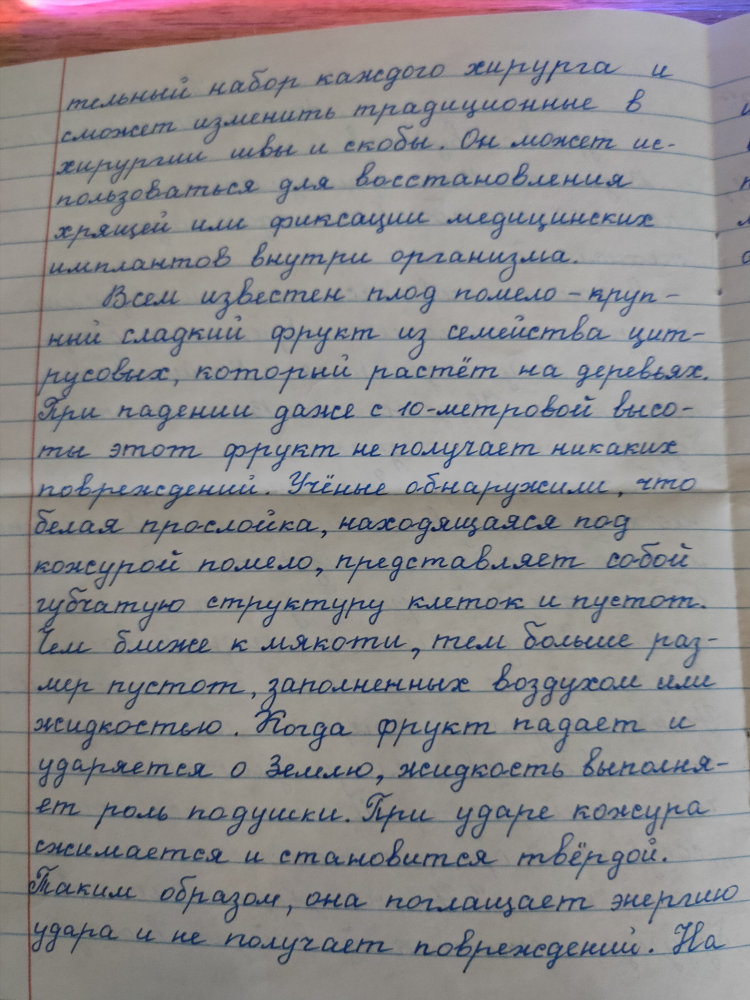 тельный набор каждого хирурга и
сможет изменить традиционные в
хирургии швы и скобы. Он может ис-
пользоваться для восстановления
хрящей или фиксации медицинских
имплантов внутри организма.
Всем известен плод помело – круп-
ный сладкий фрукт из семейства цит-
русовых, который растёт на деревьях.
При падении даже с 10-метровой высо-
ты этот фрукт не получает никаких
повреждений. Учёные обнаружили, что
белая прослойка, находящаяся под
кожурой помело, представляет собой
губчатую структуру клеток и пустот.
Чем ближе к мякоти, тем больше раз-
мер пустот, заполненных воздухом или
жидкостью. Когда фрукт падает и
ударяется о Землю, жидкость выполня-
ет роль подушки. При ударе кожура
сжимается и становится твёрдой.
Таким образом, она поглащает энергию
удара и не получает повреждений. На